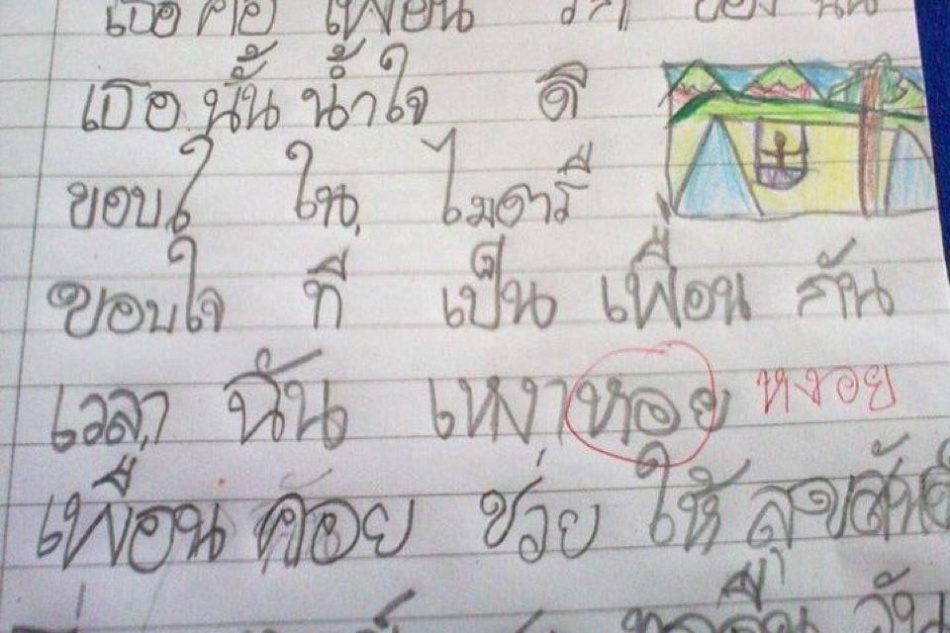 เธอ คือ เพื่อน รัก ของ ฉัน
เธอ นั้น น้ำใจ ดี
ขอบใจ ใน ไมตรี
ขอบใจ ที่ เป็น เพื่อน กัน
เวลา ฉัน เหงาหอย หงอย
เพื่อน คอย ช่วย ให้ สุขสันต์